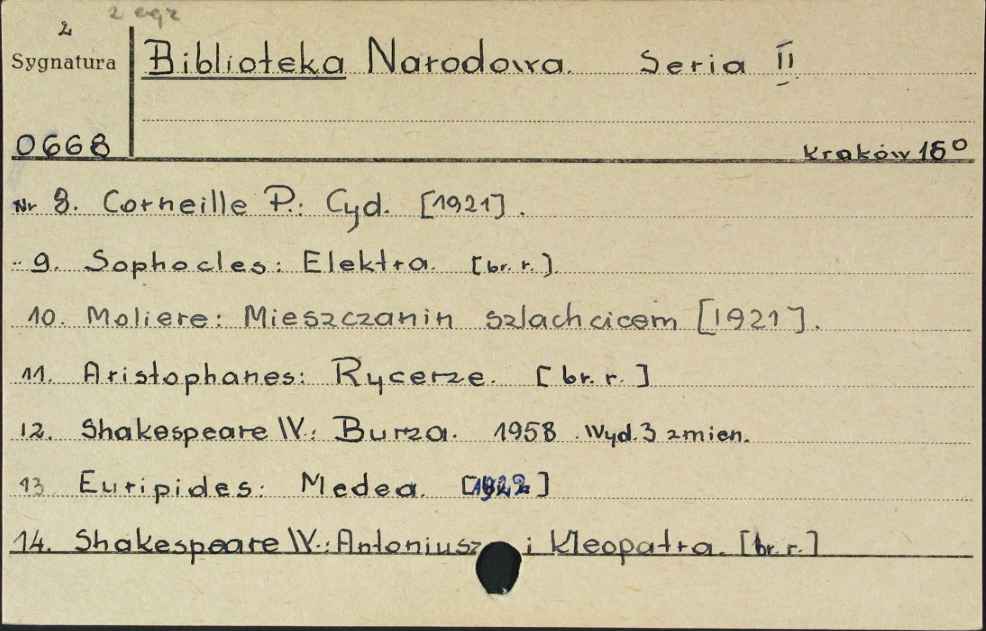 2 egz
2
Sygnatura
Biblioteka Narodowa. Seria II
0668
Kraków 16°
Nr 8. Corneille P.: Cyd. [1921].
" 9. Sophocles: Elektra. [br. r.].
10. Moliere: Mieszczanin szlachcicem [1921].
11. Aristophanes: Rycerze. [br. r.]
12. Shakespeare W.: Burza. 1958. Wyd. 3 zmien.
13 Euripides: Medea. [1922]
14. Shakespeare W.: Antoniusz i Kleopatra. [br. r.]